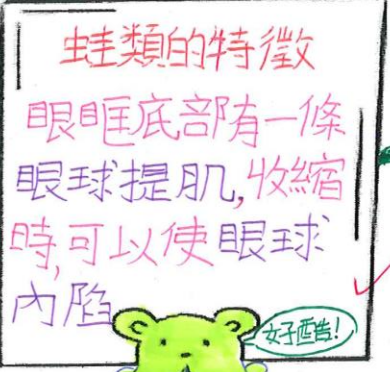 蛙類的特徵
眼眶底部有一條
眼球提肌,收縮
時,可以使眼球
內陷
好酷!